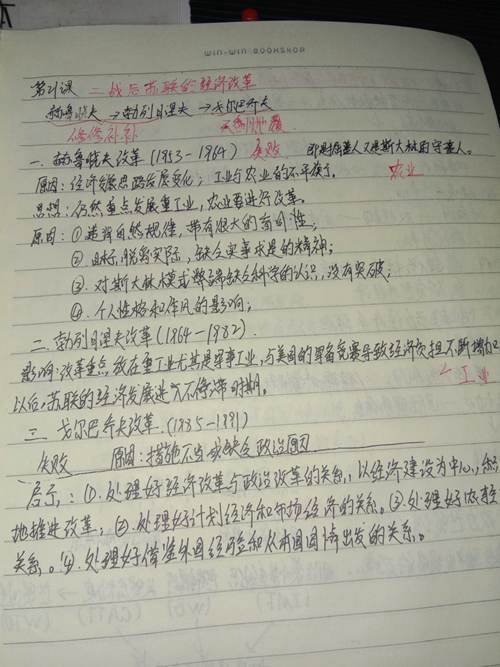 本
WIN-WIN BOOKSHOP
第21课 二战后苏联的经济改革
赫鲁晓夫→勃列日涅夫→戈尔巴乔夫
修修补补
一、赫鲁晓夫改革(1953-1964) 失败 即是掘墓人又是斯大林的守墓人。
原因:经济发展思路发展变化;工业与农业的不平衡。 农业
思想:仍然重点发展重工业,农业要进行改革。
原因:①违背自然规律,带有很大的盲目性;
②.目标脱离实际,缺乏实事求是的精神;
③.对斯大林模式弊端缺乏科学的认识,没有突破;
④.个人性格和作风的影响;
二、勃列日涅夫改革(1964-1982).
影响:改革重点放在重工业尤其是军事工业,与美国的军备竞赛导致经济负担不断增加
工业
以后,苏联的经济发展进入停滞时期。
三、戈尔巴乔夫改革.(1985-1991)
失败 原因:措施不当或缺乏政治原因
启示:①.处理好经济改革与政治改革的关系,以经济建设为中心,
地推进改革;②.处理好计划经济和市场经济的关系。③.处理好
关系。④.处理好借鉴外国经验和从本国国情出发的关系。